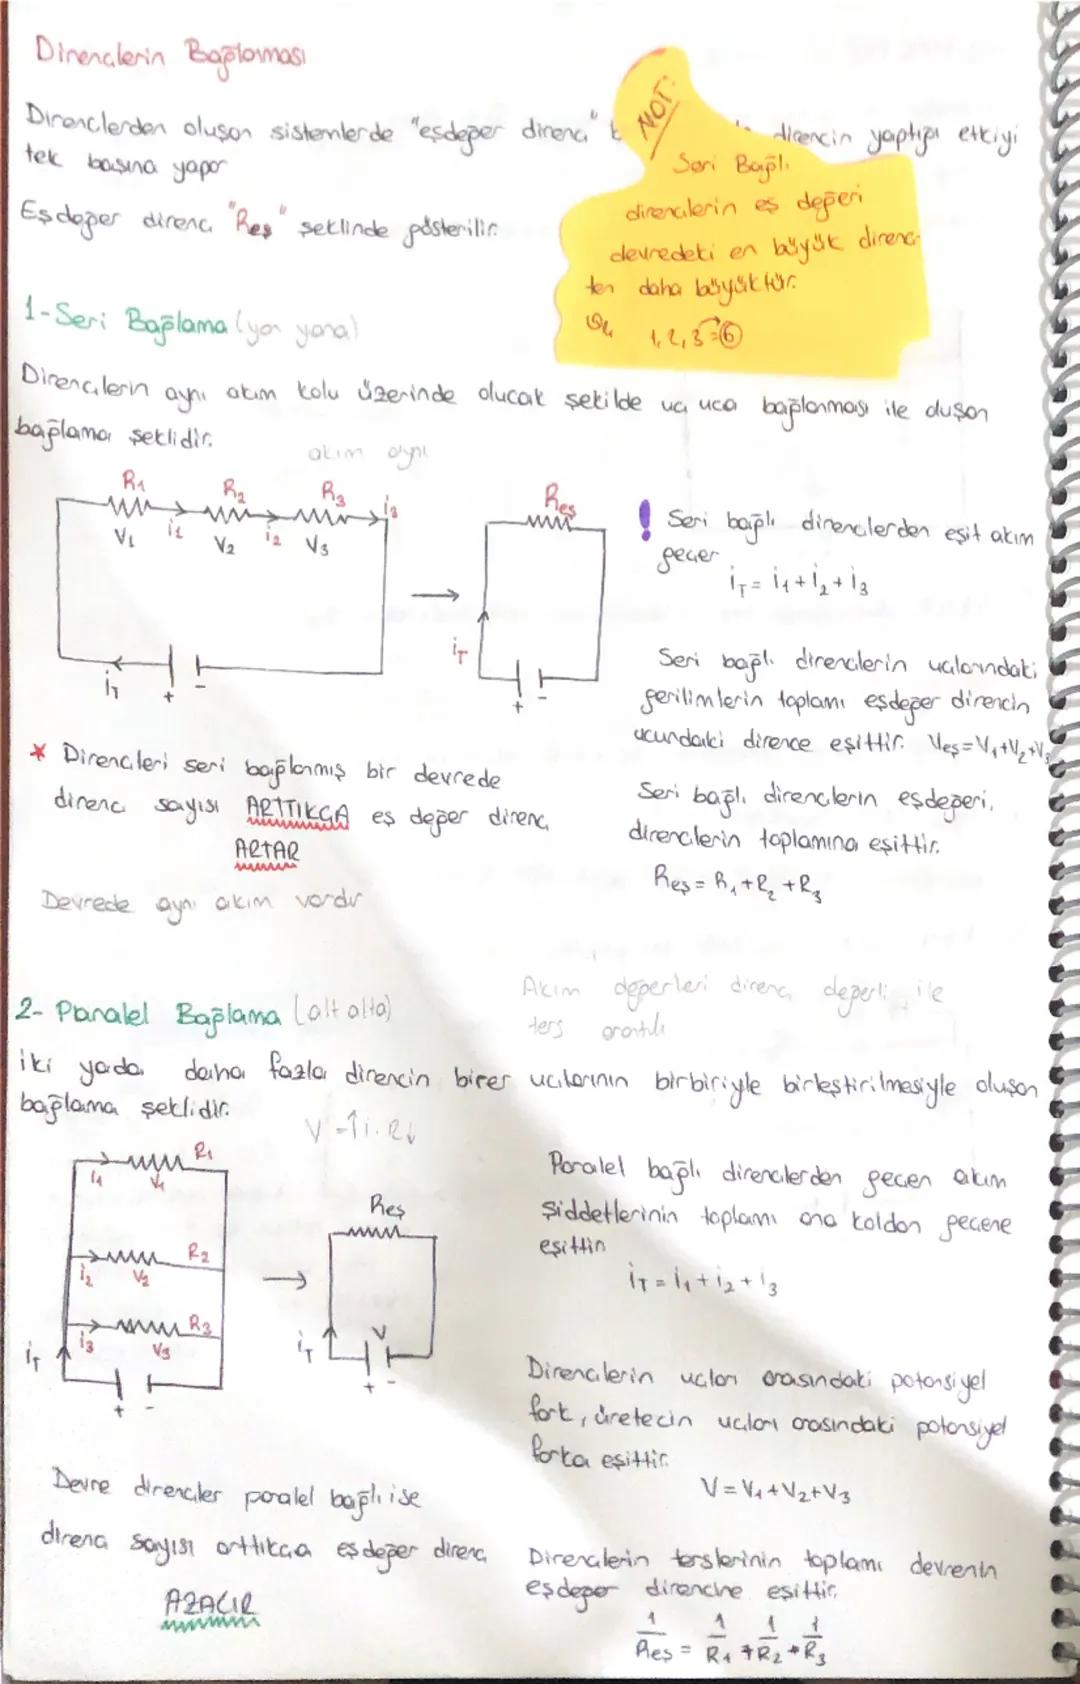 Dirençlerin Bağlanması
Dirençlerden oluşan sistemlerde "eşdeğer direnç" direncin yaptığı etkiyi
tek başına yapar
Eşdeğer direnç "Reş" şeklinde gösterilir.
NOT:
Seri Bağlı
dirençlerin eş değeri
devredeki en büyük direnç-
ten daha büyüktür.
Ör 1, 2, 3 = 6
1-Seri Bağlama (yan yana)
Dirençlerin aynı akım kolu üzerinde olucak şekilde uç uca bağlanması ile oluşan
bağlama şeklidir.
akım aynı
R1 R2 R3 i3
V1 i1 V2 i2 V3
iT + -
Reş
iT
+ -
! Seri bağlı dirençlerden eşit akım
geçer
iT = i1 + i2 + i3
Seri bağlı dirençlerin uçlarındaki
gerilimlerin toplamı eşdeğer direncin
ucundaki dirence eşittir. Veş=V1+V2+V3
Seri bağlı dirençlerin eşdeğeri,
dirençlerin toplamına eşittir.
Reş = R1 + R2 + R3
* Dirençleri seri bağlanmış bir devrede
direnç sayısı ARTTIKÇA eş değer direnç
ARTAR
Devrede aynı akım vardır
Akım değerleri direnç değerli ile
ters orantılı
2- Paralel Bağlama (alt alta)
iki yada daha fazla direncin birer uçlarının birbiriyle birleştirilmesiyle oluşan
bağlama şeklidir.
V = ↑i.R↓
i1 R1
V1
R2
i2 V2
R3
i3 V3
iT
+ -
Reş
iT V
+ -
Paralel bağlı dirençlerden geçen akım
şiddetlerinin toplamı ana koldan geçene
eşittir
iT = i1 + i2 + i3
Dirençlerin uçları arasındaki potansiyel
fark, üretecin uçları arasındaki potansiyel
farka eşittir.
V = V1 + V2 + V3
Devre dirençler paralel bağlı ise
direnç sayısı arttıkça eşdeğer direnç
AZALIR
Dirençlerin terslerinin toplamı devrenin
eşdeğer direncine eşittir.
1/Reş = 1/R1 + 1/R2 + 1/R3